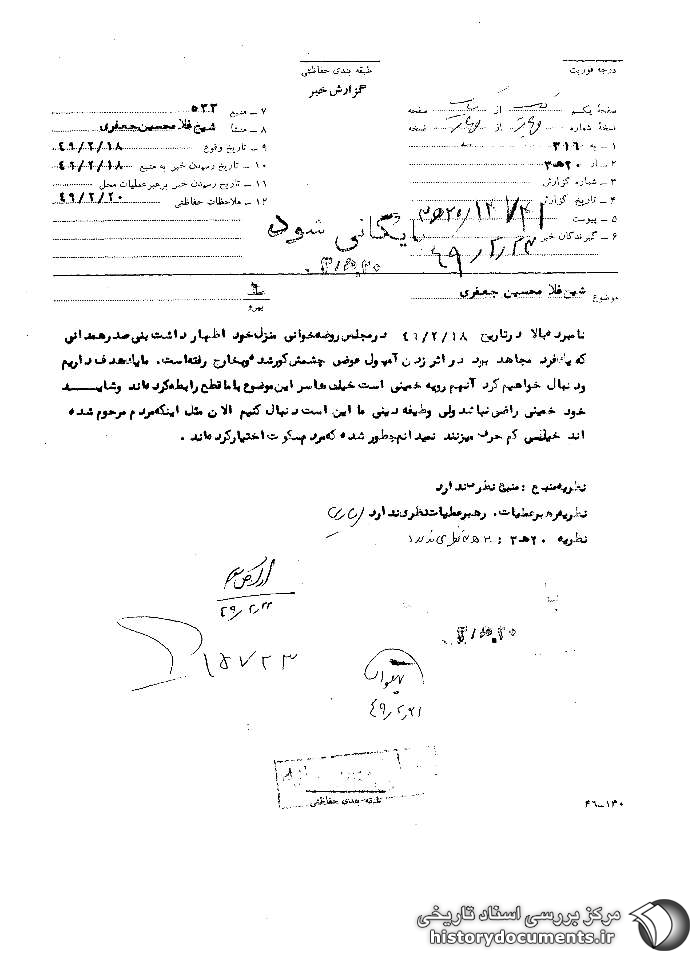 درجه فوریت
طبقه بندی حفاظتی
گزارش خبر
صفحهٔ یکم از صفحه
نسخهٔ شماره از نسخه
۱ ـ به ۳۱۶
۲ ـ از ۲۰ ه‍ ۳
۳ ـ شماره گزارش
۴ ـ تاریخ گزارش
۵ ـ پیوست
۶ ـ گیرندگان خبر
۷ ـ منبع ۵۳۳
۸ ـ منشأ شیخ غلامحسین جعفری
۹ ـ تاریخ وقوع ۴۹/۲/۱۸
۱۰ ـ تاریخ رسیدن خبر به منبع ۴۹/۲/۱۸
۱۱ ـ تاریخ رسیدن خبر برهبر عملیات محل
۱۲ ـ ملاحظات حفاظتی ۴۹/۲/۲۰
بایگانی شود
۴۹/۲/۲۳
موضوع شیخ غلامحسین جعفری
پیرو
نامبرده بالا در تاریخ ۴۹/۲/۱۸ در مجلس روضه خوانی منزل خود اظهار داشت بنی صدر همدانی
که یک فرد مجاهد بود در اثر زدن آمپول عوضی چشمش کور شده و بخارج رفته است. ما یک هدف داریم
و دنبال خواهیم کرد آنهم رویه خمینی است خیلی ها سر این موضوع با ما قطع رابطه کرده اند و شاید
خود خمینی راضی نباشد ولی وظیفه دینی ما این است دنبال کنیم الان مثل اینکه مردم مرحوم شده
اند خیلی کم حرف میزنند نمیدانم چطور شده که مردم سکوت اختیار کرده اند .
نظریه منبع : منبع نظری ندارد
نظریه رهبر عملیات. رهبر عملیات نظری ندارد
نظریه ۲۰ ه‍ ۳ :
۴۹/۲/۲۲
۱۵۷۲۳
۴۹/۲/۲۱
طبقه بندی حفاظتی
۴۶-۱۴۰
مرکز بررسی اسناد تاریخی
historydocuments.ir